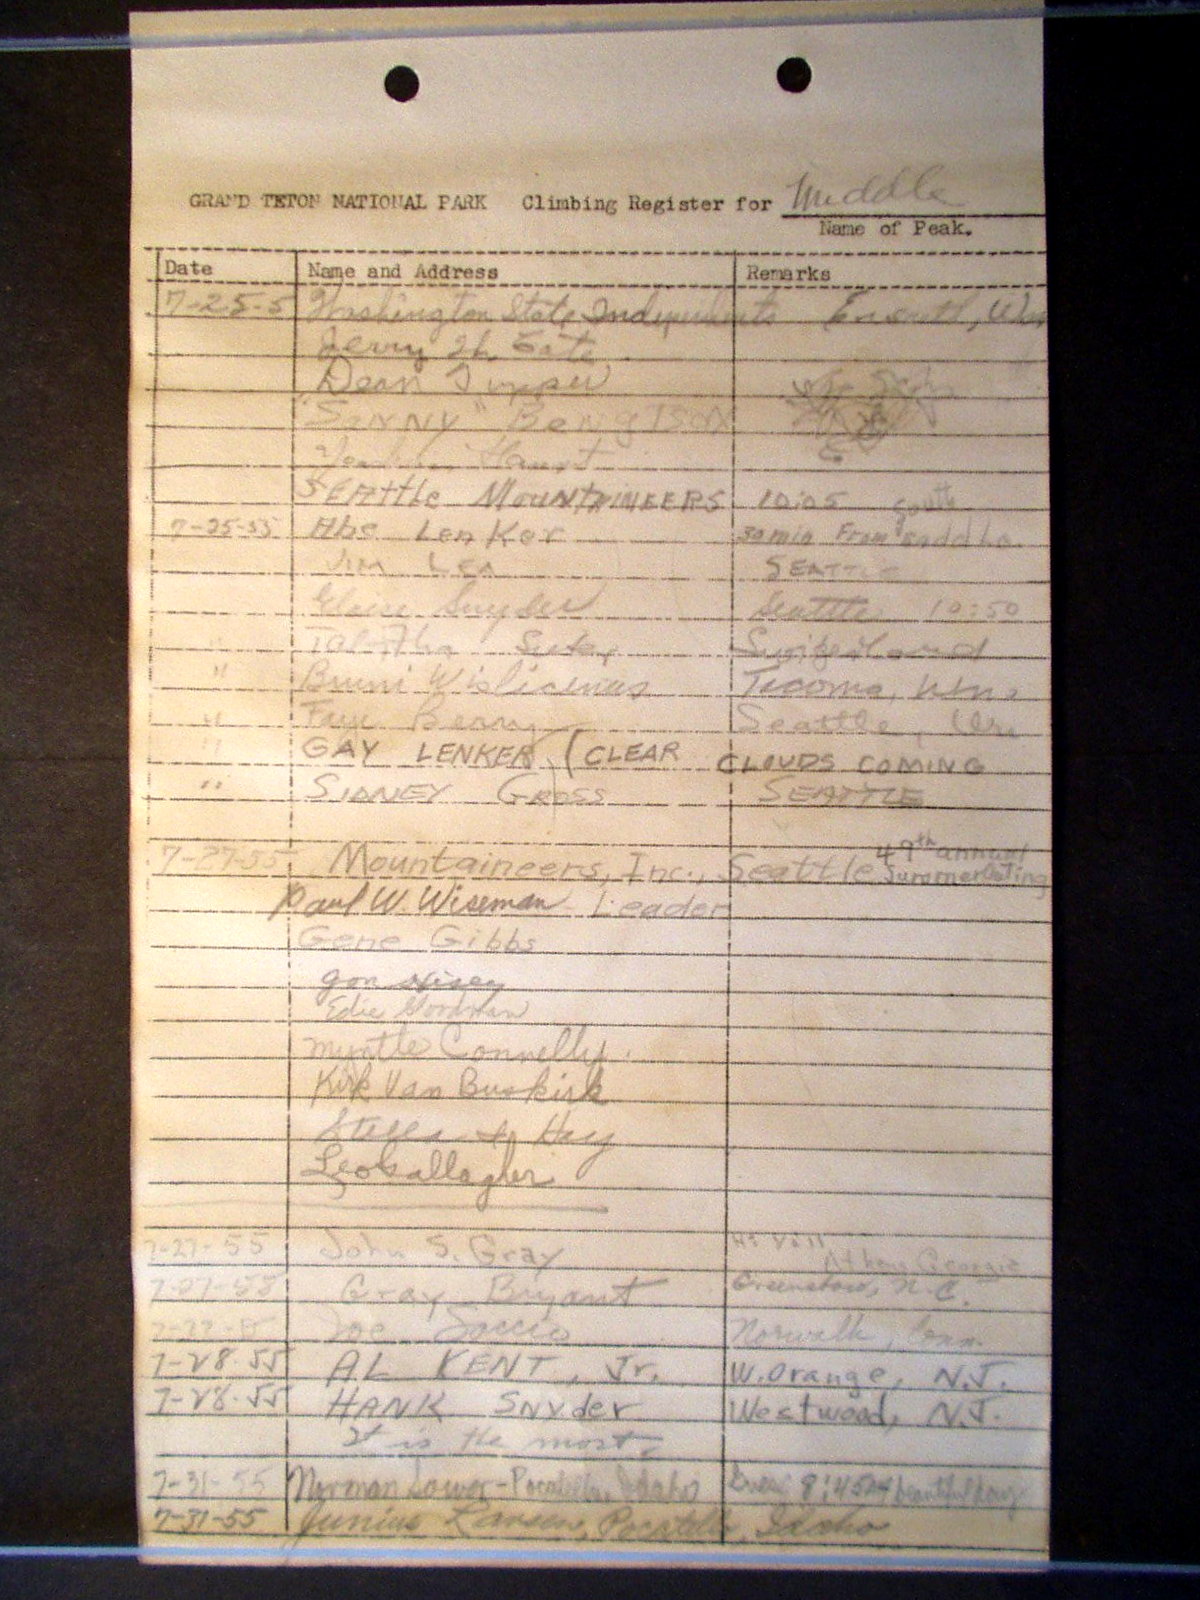 GRAND TETON NATIONAL PARK Climbing Register for Middle
Name of Peak.
Date Name and Address Remarks
7-25-5 Washington State Independents Everett, Wn
Jerry
Dean
"SONNY" BengTSON
SEAttle MOUNTAINEERS 10:05 South
7-25-55 Abe LenKer 30 min From Saddle
JIM LEA SEATTLE
Eloise Snyder Seattle 10:50
" Suter Switzerland
" Bruni Wislicenus Tacoma, Wn.
" Faye Berry Seattle, Wn.
" GAY LENKER (CLEAR CLOUDS COMING
" SIDNEY GROSS SEATTLE
7-27-55 Mountaineers, Inc., Seattle 49th annual Summer Outing
Paul W. Wiseman Leader
Gene Gibbs
Jon Hisey
Edie Goodman
Myrtle Connelly
Kirk Van Buskirk
Stella Hay
Leo Gallagher
7-27-55 John S. Gray Athens Georgia
7-27-55 Gray Bryant Greensboro, N.C.
7-27-55 Joe Soccio Norwalk, Conn.
7-28-55 AL KENT, Jr. W. Orange, N.J.
7-28-55 HANK SNyder Westwood, N.J.
It is the most.
7-31-55 Norman Lower - Pocatello, Idaho 9:45 beautiful day
7-31-55 Junius Larsen, Pocatello, Idaho